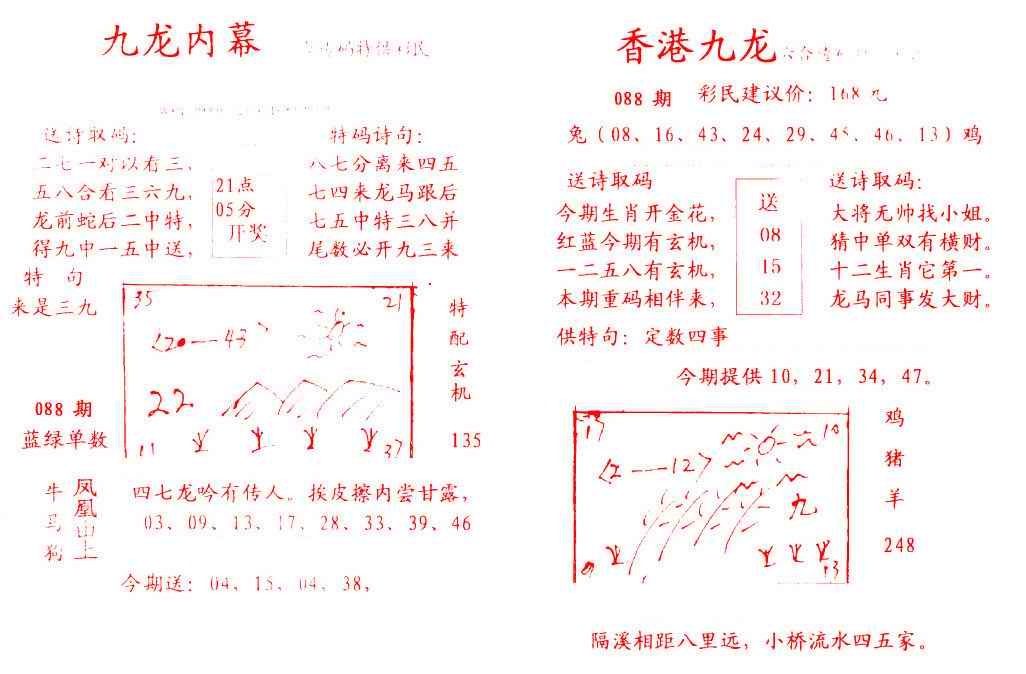 九龙内幕
送诗取码：
二七一对以有三，
五八合有三六九，
龙前蛇后二中特，
得九中一五中送，
特 句
来是三九
21点
05分
开奖
特码诗句：
八七分离来四五
七四来龙马跟后
七五中特三八并
尾数必开九三来
35 21
〈20—43〉
22
11 37
特
配
玄
机
135
088 期
蓝绿单数
牛
马
狗
凤
凰
中
上
四七龙吟有传人。挨皮擦内尝甘露，
03、09、13、17、28、33、39、46
今期送：04、15、04、38，
香港九龙
088 期 彩民建议价：168元
兔（08、16、43、24、29、45、46、13）鸡
送诗取码
今期生肖开金花，
红蓝今期有玄机，
一二五八有玄机，
本期重码相伴来，
送
08
15
32
送诗取码：
大将无帅找小姐。
猜中单双有横财。
十二生肖它第一。
龙马同事发大财。
供特句：定数四事
今期提供 10，21，34，47。
10
〈2—12〉
九
鸡
猪
羊
248
隔溪相距八里远，小桥流水四五家。